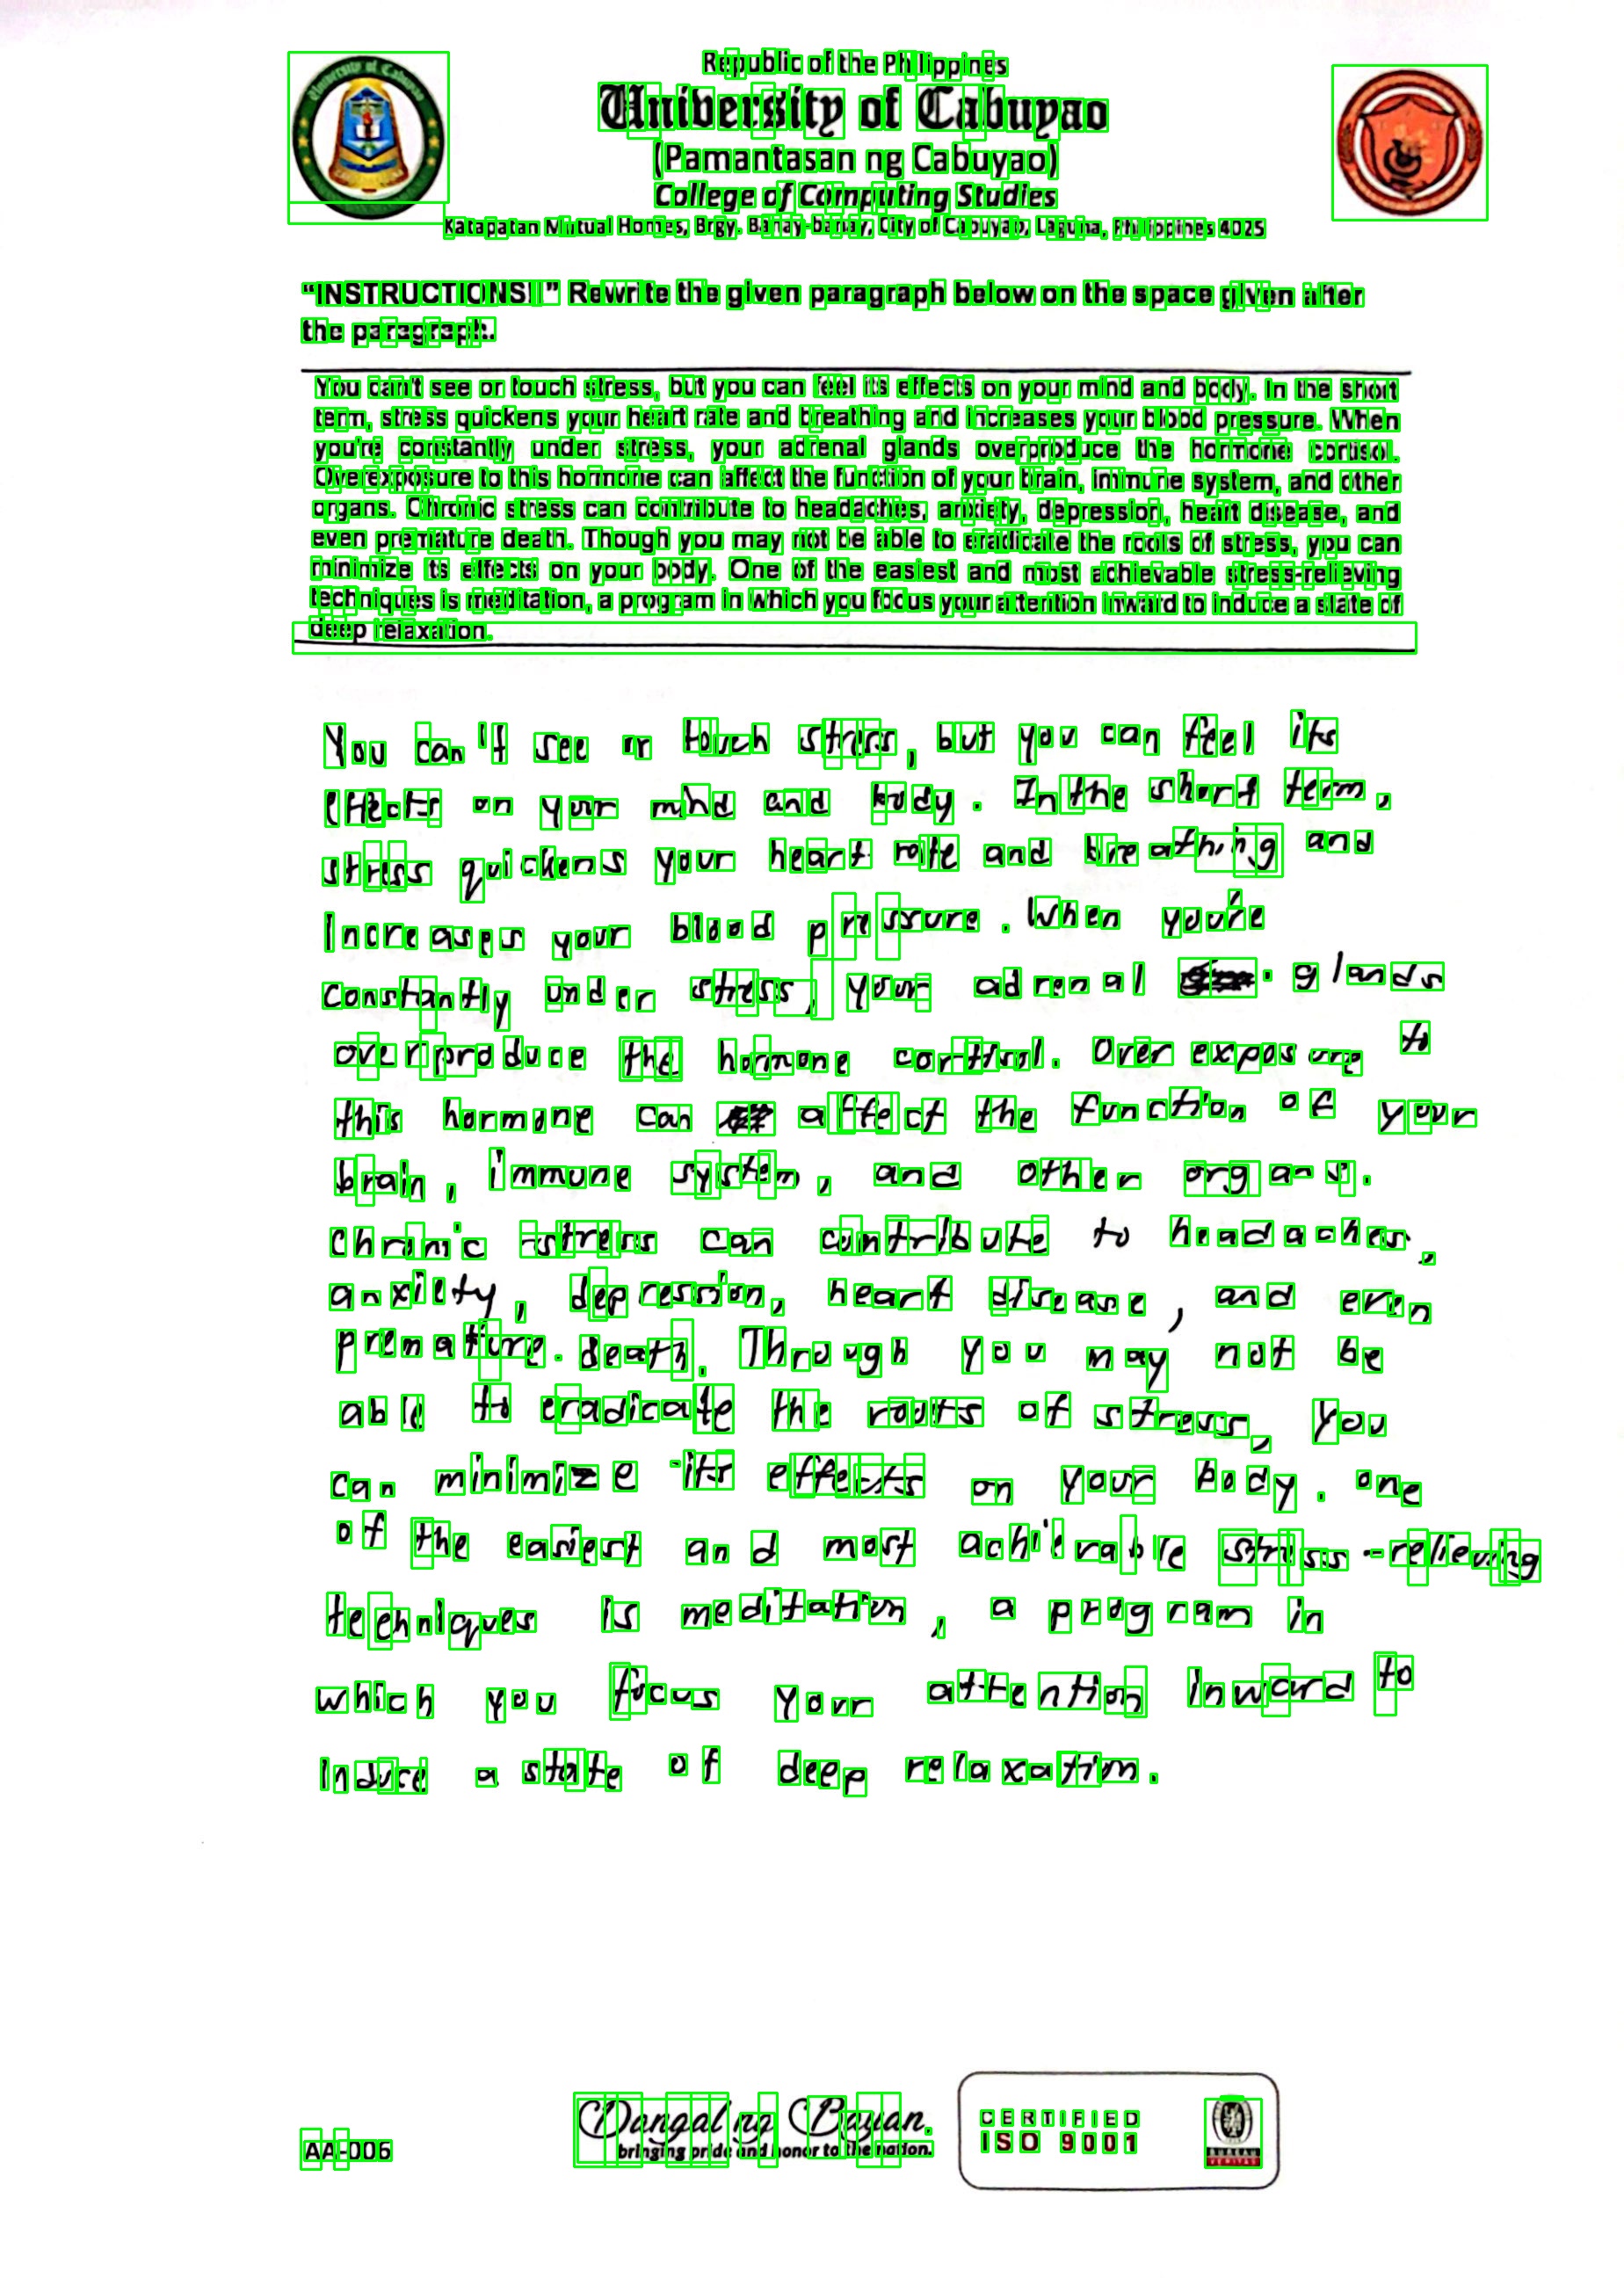 Republic of the Philippines
University of Cabuyao
(Pamantasan ng Cabuyao)
College of Computing Studies
Katapatan Mutual Homes, Brgy. Banay-banay, City of Cabuyao, Laguna, Philippines 4025
“INSTRUCTIONS!!” Rewrite the given paragraph below on the space given after
the paragraph.
You can't see or touch stress, but you can feel its effects on your mind and body. In the short
term, stress quickens your heart rate and breathing and increases your blood pressure. When
you're constantly under stress, your adrenal glands overproduce the hormone cortisol.
Overexposure to this hormone can affect the function of your brain, immune system, and other
organs. Chronic stress can contribute to headaches, anxiety, depression, heart disease, and
even premature death. Though you may not be able to eradicate the roots of stress, you can
minimize its effects on your body. One of the easiest and most achievable stress-relieving
techniques is meditation, a program in which you focus your attention inward to induce a state of
deep relaxation.
You can't see or touch stress, but you can feel its
effects on your mind and body. In the short term,
stress quickens your heart rate and breathing and
increases your blood pressure. When you're
constantly under stress, your adrenal glands
overproduce the hormone cortisol. Over exposure to
this hormone can affect the function of your
brain, immune system, and other organs.
chronic stress can contribute to headaches,
anxiety, depression, heart disease, and even
premature death. Through you may not be
able to eradicate the roots of stress, you
can minimize its effects on your body. one
of the easiest and most achievable stress-relieving
techniques is meditation, a program in
which you focus your attention inward to
induce a state of deep relaxation.
Dangal ng Bayan.
bringing pride and honor to the nation.
CERTIFIED
ISO 9001
BUREAU
VERITAS
AA-006